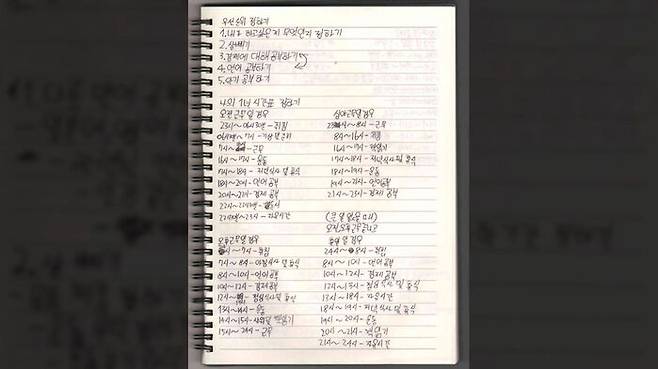 우선순위 정하기
1. 내가 하고싶은지 무엇인지 정하기
2. 살빼기
3. 경제에 대해 공부하기
4. 언어 공부하기
5. 악기 공부하기
나의 1년 시간표 정하기
오전근무일 경우
23시~06시30분 - 취침
7시~ - 근무
16시~17시 - 운동
17시~18시 - 저녁식사 및 휴식
18시~20시 - 언어공부
20시~22시 - 경제 공부
22시~23시 - 자유시간
심야근무일 경우
23시~8시 - 근무
8시~16시 - 취침
16시~17시 - 책읽기
17시~18시 - 저녁식사 및 휴식
18시~19시 - 운동
19시~21시 - 언어공부
21시~23시 - 경제 공부
오후근무일 경우
~7시 - 취침
7시~8시 - 아침식사 및 휴식
8시~10시 - 언어공부
10시~12시 - 경제공부
12시~ - 점심식사 및 휴식
13시~14시 - 운동
14시~15시 - 샤워및 책읽기
15시~24시 - 근무
휴일일 경우
24시~8시 - 취침
8시~10시 - 언어공부
10시~12시 - 경제공부
12시~13시 - 점심식사 및 휴식
13시~18시 - 자유시간
18시~19시 - 저녁식사 및 휴식
19시~20시 - 운동
20시~21시 - 책읽기
21시~24시 - 자유시간